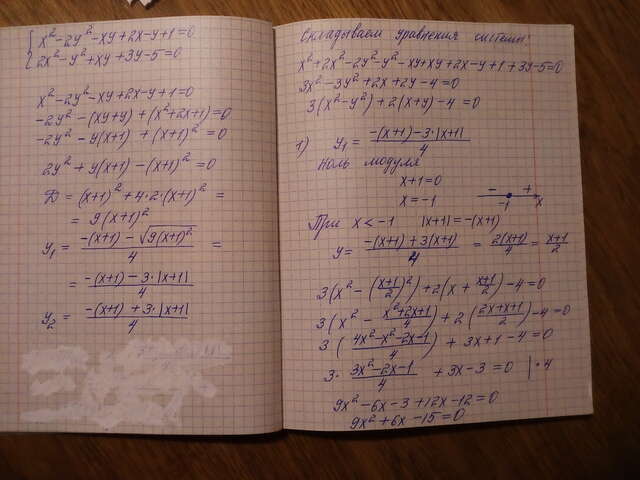 x² - 2y² - xy + 2x - y + 1 = 0
2x² - y² + xy + 3y - 5 = 0
x² - 2y² - xy + 2x - y + 1 = 0
-2y² - (xy + y) + (x² + 2x + 1) = 0
-2y² - y(x+1) + (x+1)² = 0
2y² + y(x+1) - (x+1)² = 0
D = (x+1)² + 4·2·(x+1)² =
= 9(x+1)²
y₁ = (-(x+1) - √(9(x+1)²))/4 =
= (-(x+1) - 3·|x+1|)/4
y₂ = (-(x+1) + 3·|x+1|)/4
Складываем уравнения системы:
x² + 2x² - 2y² - y² - xy + xy + 2x - y + 1 + 3y - 5 = 0
3x² - 3y² + 2x + 2y - 4 = 0
3(x² - y²) + 2(x+y) - 4 = 0
1) y₁ = (-(x+1) - 3·|x+1|)/4
Ноль модуля
x + 1 = 0
x = -1
- + -1 x
При x < -1 |x+1| = -(x+1)
y = (-(x+1) + 3(x+1))/4 = 2(x+1)/4 = (x+1)/2
3(x² - ((x+1)/2)²) + 2(x + (x+1)/2) - 4 = 0
3(x² - (x²+2x+1)/4) + 2((2x+x+1)/2) - 4 = 0
3((4x²-x²-2x-1)/4) + 3x + 1 - 4 = 0
3·(3x²-2x-1)/4 + 3x - 3 = 0 |·4
9x² - 6x - 3 + 12x - 12 = 0
9x² + 6x - 15 = 0